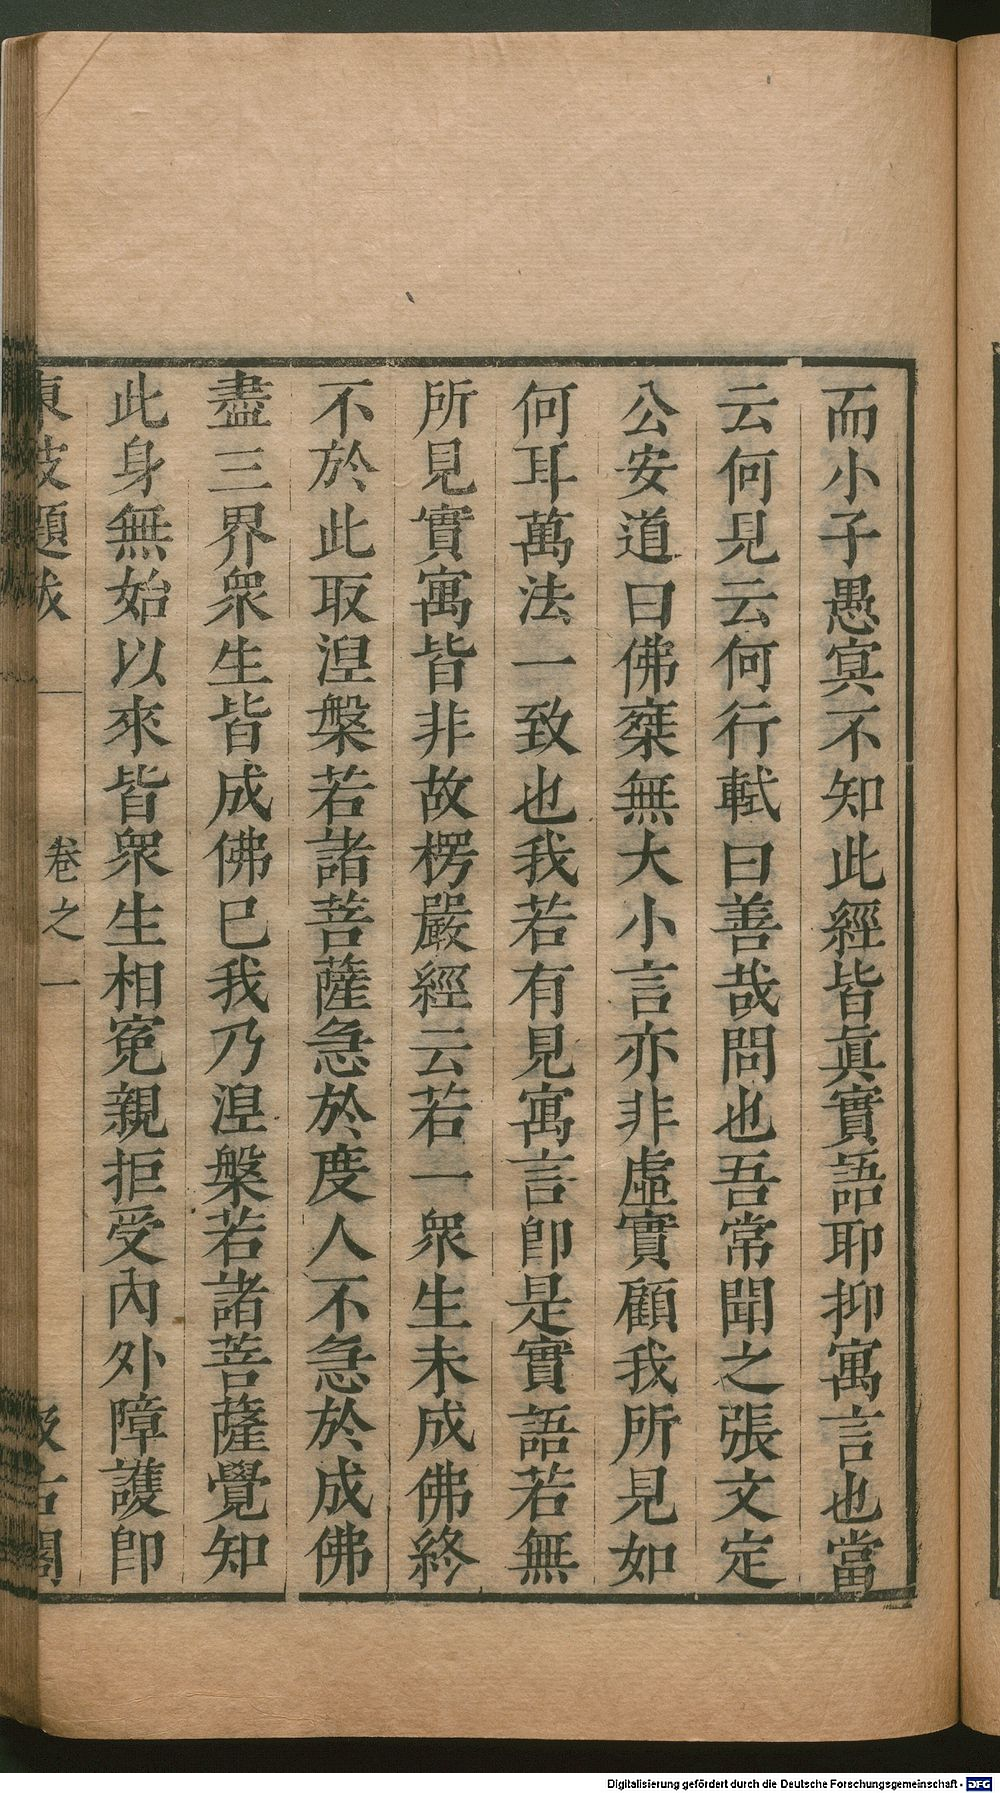 而小子愚冥不知此經皆眞實語耶抑寓言也當
云何見云何行軾曰善哉問也吾常聞之張文定
公安道曰佛椉無大小言亦非虛實顧我所見如
何耳萬法一致也我若有見寓言卽是實語若無
所見實寓皆非故楞嚴經云若一衆生未成佛終
不於此取涅槃若諸菩薩急於度人不急於成佛
盡三界衆生皆成佛巳我乃涅槃若諸菩薩覺知
此身無始以來皆衆生相寃親拒受內外障護卽
東坡題跋 卷之一 汲古閣
Digitalisierung gefördert durch die Deutsche Forschungsgemeinschaft - DFG